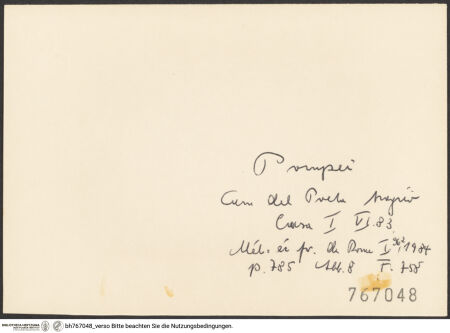 Pompei
Casa del Poeta tragico
Casa I VI.83
Mél. éc. fr. de Rome I 96², 1984
p. 785 Abb. 8 F. 758
767048
BIBLIOTHECA HERTZIANA
bh767048_verso Bitte beachten Sie die Nutzungsbedingungen.